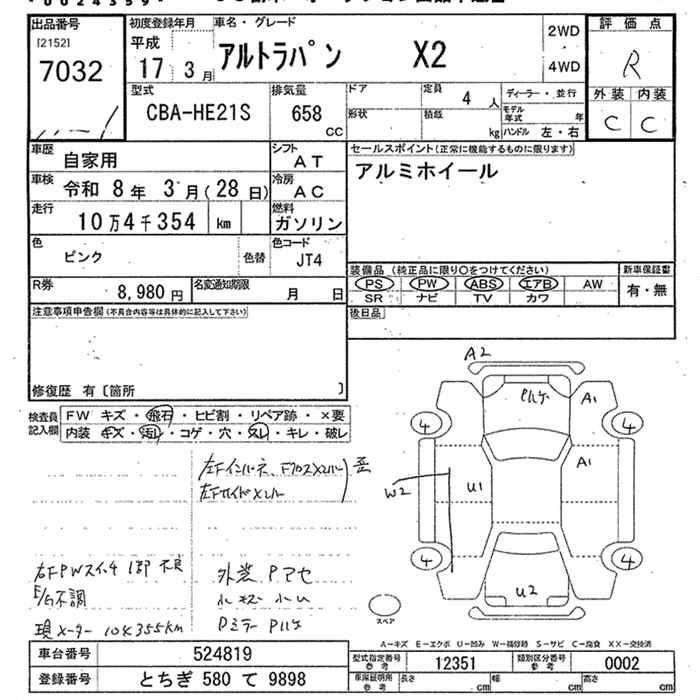 00024359
出品番号
[2152]
7032
初度登録年月
平成
17 3月
車名・グレード
アルトラパン X2
2WD
4WD
評価点
R
外装 内装
C C
型式
CBA-HE21S
排気量
658
CC
ドア
形状
定員
4 人
積載
kg
ディーラー・並行
モデル年式 年
ハンドル 左・右
車歴
自家用
シフト
AT
車検
令和 8年 3月(28日)
冷房
AC
走行
10万4千354 km
燃料
ガソリン
色
ピンク
色替
色コード
JT4
R券
8,980円
名変通知期限
月 日
セールスポイント(正常に機能するものに限ります)
アルミホイール
装備品 (純正品に限り〇をつけてください)
PS PW ABS エアB AW
SR ナビ TV カワ
新車保証書
有・無
後日品
注意事項申告欄(不具合内容等は具体的に記入して下さい)
修復歴 有〔箇所 〕
検査員記入欄
FW キズ・飛石・ヒビ割・リペア跡・×要
内装 キズ・汚レ・コゲ・穴・スレ・キレ・破レ
左Fインパネ、
歪
右FPWスイッチ 1部 不良
E/G不調
現メーター 104355km
外装 Pアセ
小キズ 小凹
Dミラー Pハゲ
A2
Pハゲ
A1
4
4
A1
W2
U1
4
4
U2
スペア
A-キズ E-エクボ U-凹み W-補修跡 S-サビ C-腐食 XX-交換済
車台番号 524819
登録番号 とちぎ 580 て 9898
型式指定番号 参考 12351
類別区分番号 参考 0002
車庫証明用 参考
長さ cm 幅 cm 高さ cm